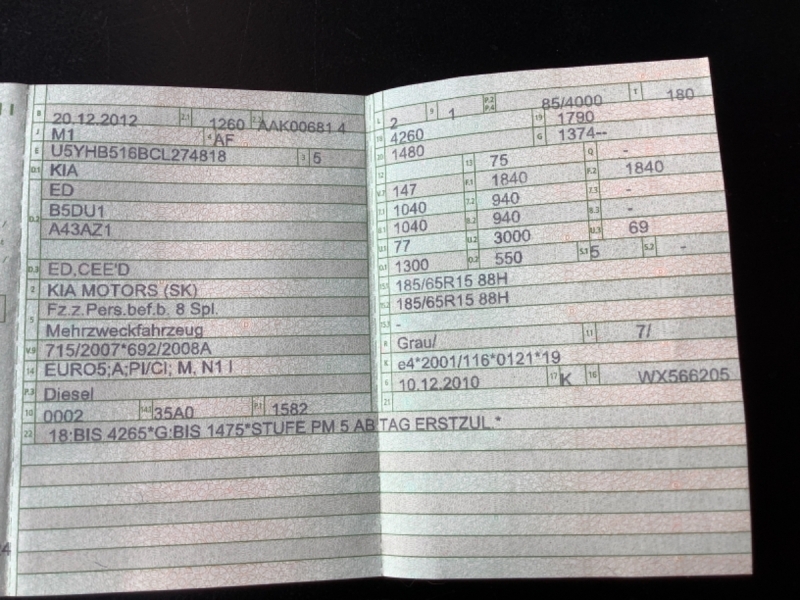 B 20.12.2012 2.1 1260 2.2 AAK00681 4
J M1 4 AF
E U5YHB516BCL274818 3 5
D.1 KIA
ED
D.2 B5DU1
A43AZ1
D.3 ED,CEE'D
2 KIA MOTORS (SK)
5 Fz.z.Pers.bef.b. 8 Spl.
Mehrzweckfahrzeug
V.9 715/2007*692/2008A
14 EURO5;A;PI/CI; M, N1 I
P.3 Diesel
10 0002 14.1 35A0 P.1 1582
22 18:BIS 4265*G:BIS 1475*STUFE PM 5 AB TAG ERSTZUL.*
L 2 9 1 P.2 P.4 85/4000 T 180
18 4260 19 1790
20 1480 G 1374--
12 13 75 Q -
V.7 147 F.1 1840 F.2 1840
7.1 1040 7.2 940 7.3 -
8.1 1040 8.2 940 8.3 -
U.1 77 U.2 3000 U.3 69
O.1 1300 O.2 550 S.1 5 S.2 -
15.1 185/65R15 88H
15.2 185/65R15 88H
15.3 -
R Grau/ 11 7/
K e4*2001/116*0121*19
6 10.12.2010 17 K 16 WX566205
21